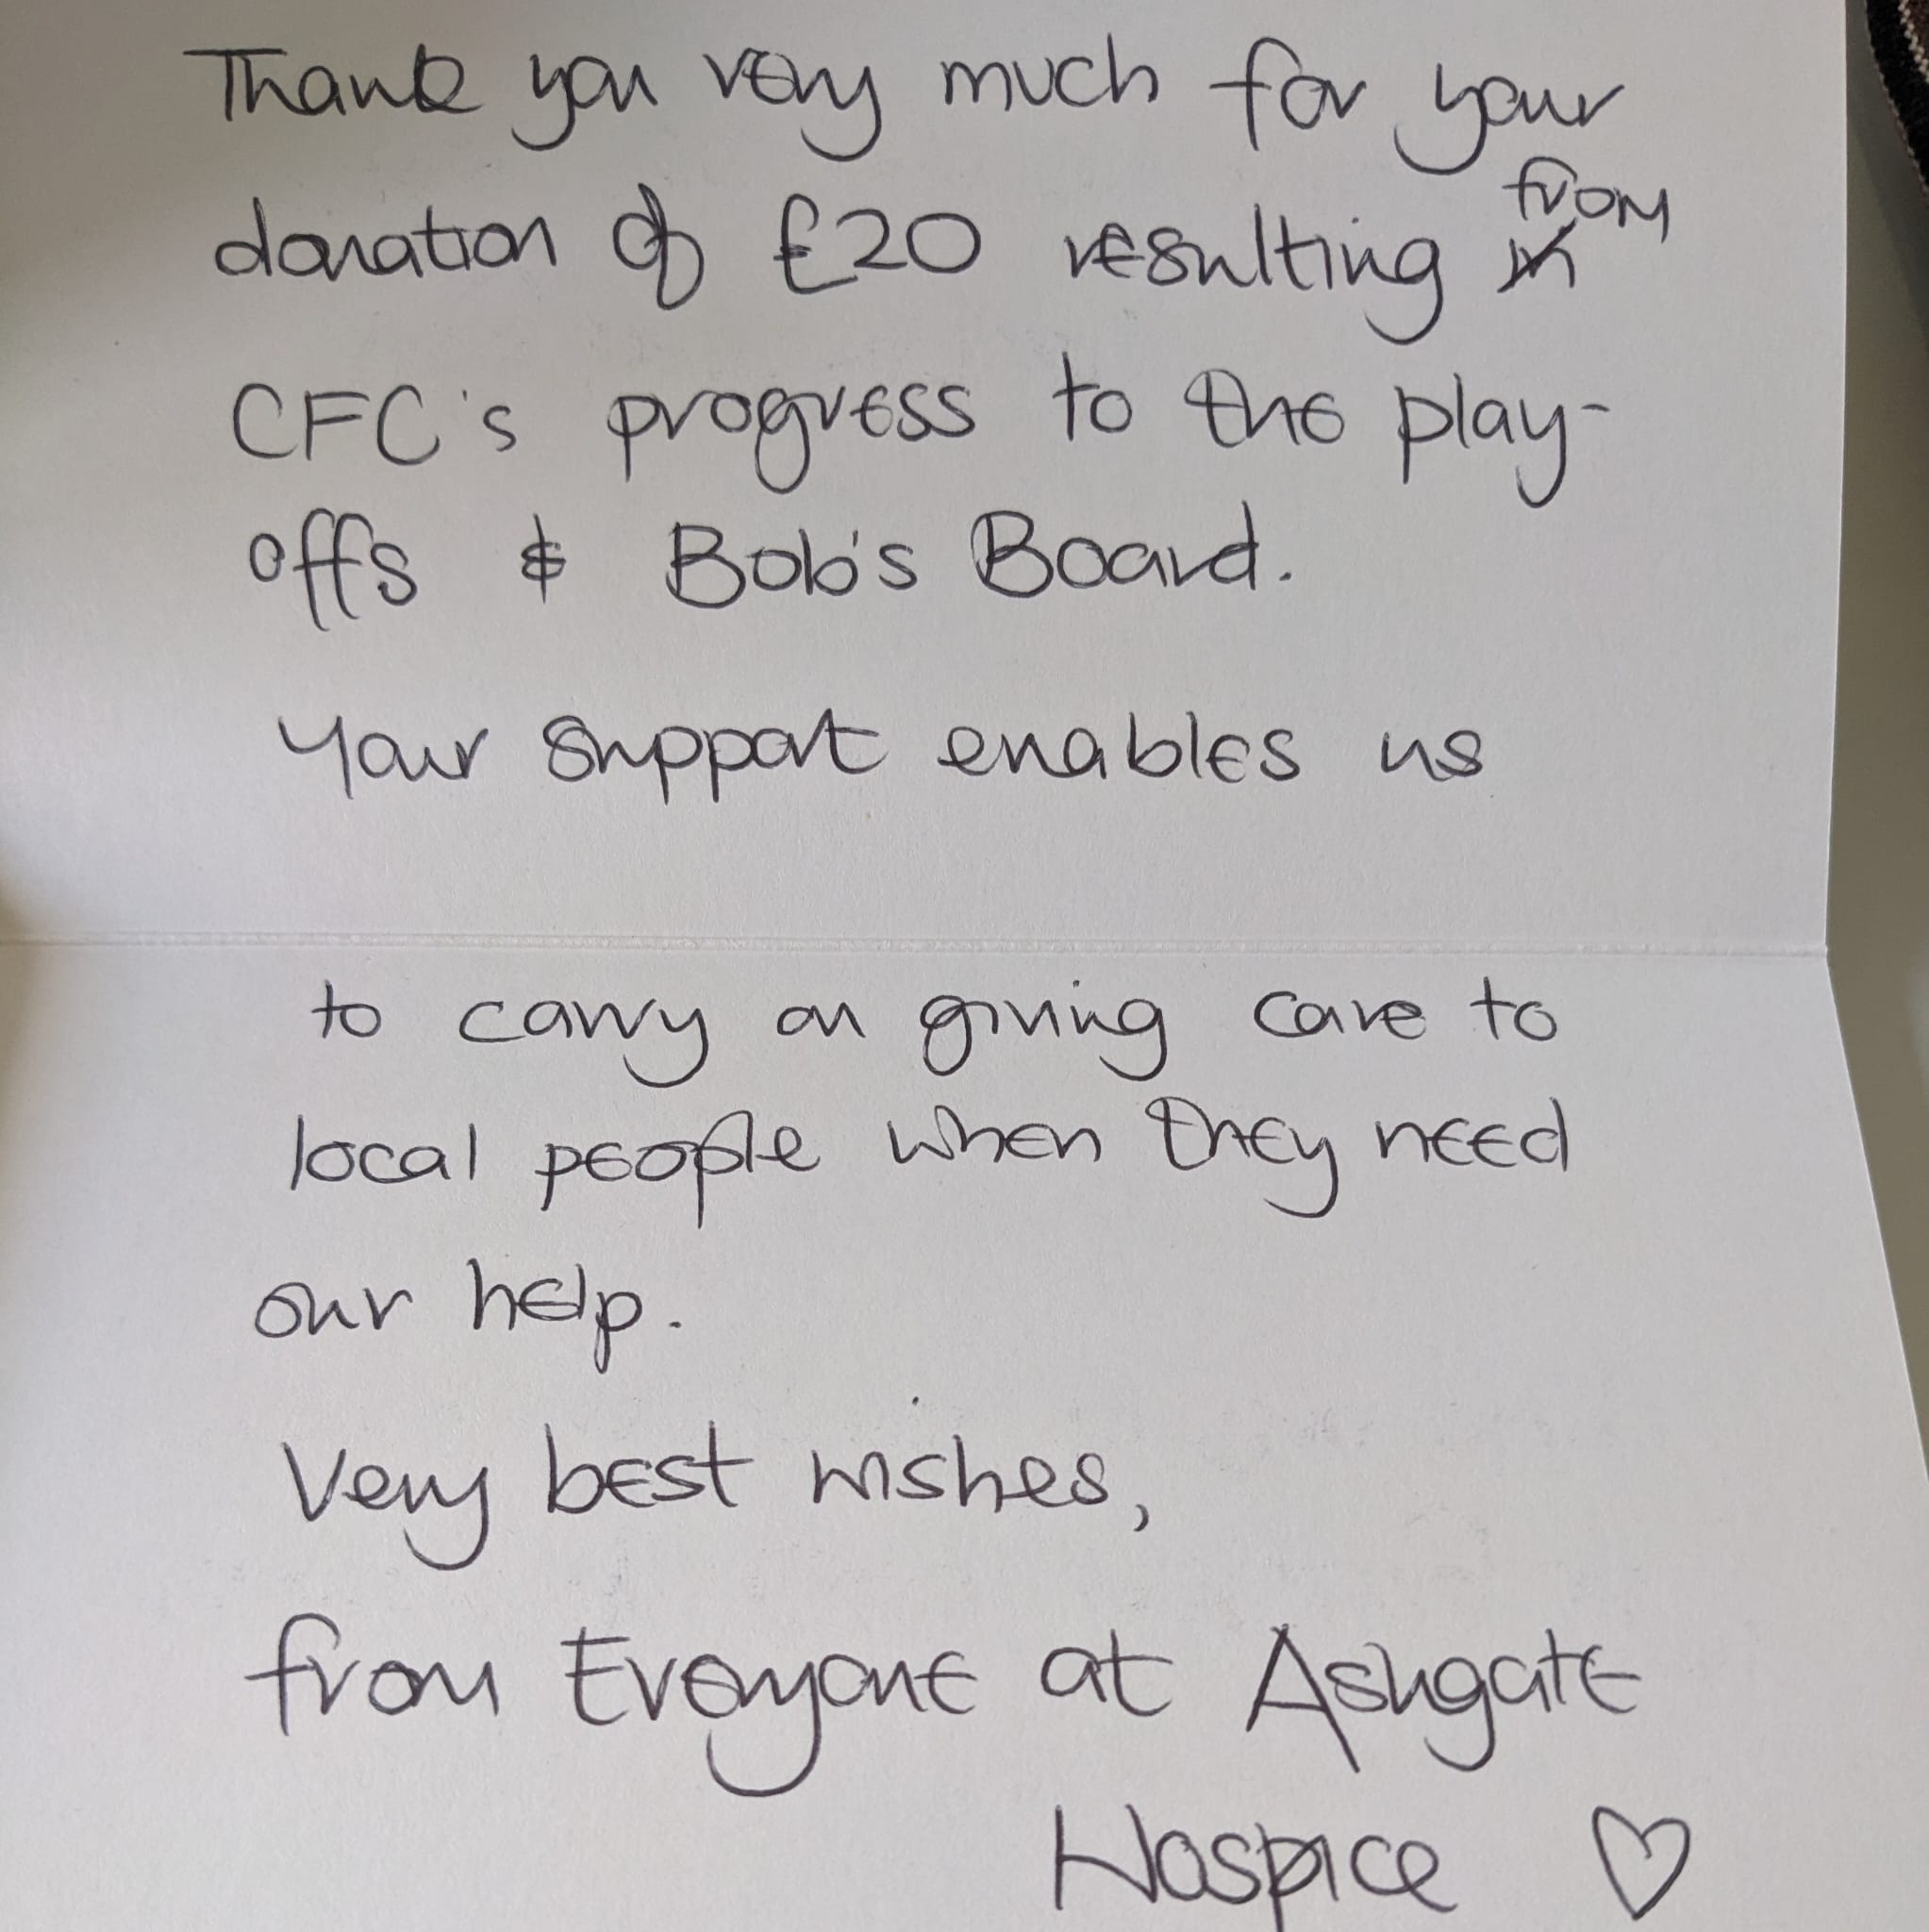 Thank you very much for your
donation of £20 resulting from
CFC's progress to the play-
offs & Bob's Board.
Your support enables us
to carry on giving care to
local people when they need
our help.
Very best wishes,
from Everyone at Ashgate
Hospice ♡